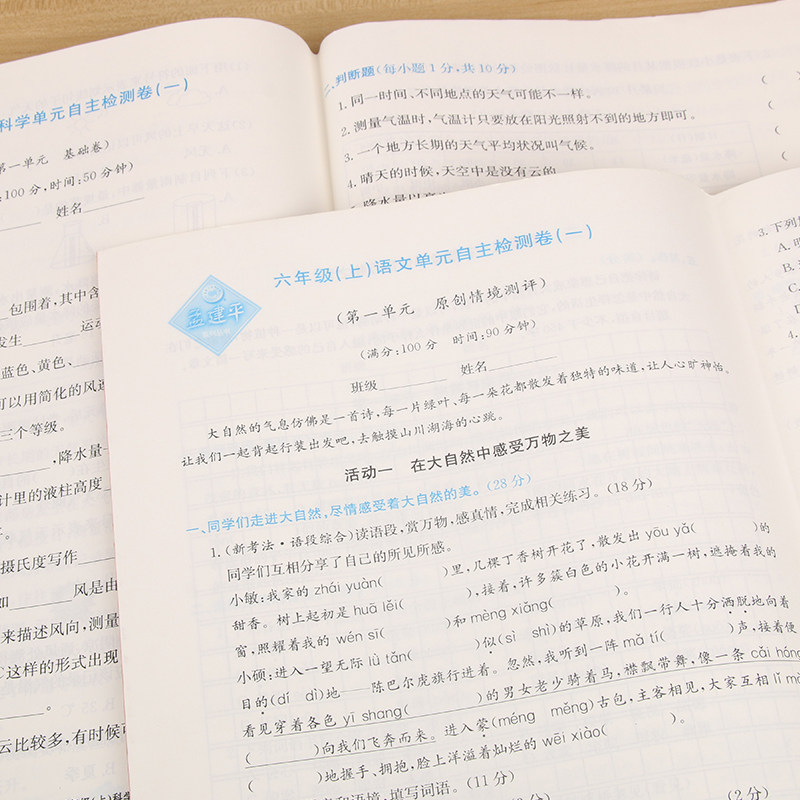 科学单元自主检测卷(一)
第一单元 基础卷)
:100分,时间:50分钟)
姓名
包围着,其中含
发生 运动
蓝色、黄色、
可以用简化的风速
三个等级。
,降水量
计里的液柱高度
摄氏度写作
如 风是由
来描述风向,测量
C这样的形式出现
。
云比较多,有时候可
二、判断题(每小题1分,共10分)
1.同一时间、不同地点的天气可能不一样。 (
2.测量气温时,气温计只要放在阳光照射不到的地方即可。
3.一个地方长期的天气平均状况叫气候。 (
4.晴天的时候,天空中是没有云的。 (
六年级(上)语文单元自主检测卷(一)
孟建平
(第一单元 原创情境测评)
(满分:100分 时间:90分钟)
班级 姓名
大自然的气息仿佛是一首诗,每一片绿叶、每一朵花都散发着独特的味道,让人心旷神怡。
让我们一起背起行装出发吧,去触摸山川湖海的心跳。
活动一 在大自然中感受万物之美
一、同学们走进大自然,尽情感受着大自然的美。(28分)
1.(新考法·语段综合)读语段,赏万物,感真情,完成相关练习。(18分)
同学们互相分享了自己的所见所感。
小敏:我家的zhái yuàn( )里,几棵丁香树开花了,散发出yōu yǎ( )的
甜香。树上起初是huā lěi( ),接着,许多簇白色的小花开满一树,遮掩着我的
窗,照耀着我的wén sī( )和mèng xiǎng( )。
小硕:进入一望无际lǜ tǎn( )似(sì shì)的草原,我们一行人十分洒脱地向着
目的(dí dì)地——陈巴尔虎旗行进着。忽然,我听到一阵mǎ tí( )声,接着便
看见穿着各色yī shang( )的男女老少骑着马,襟飘带舞,像一条cǎi hóng
( )向我们飞奔而来。进入蒙(méng měng)古包,主客相见,大家互相lǐ mào
( )地握手、拥抱,脸上洋溢着灿烂的wēi xiào( )。
和语境,填写词语。(11分)
(2分)
3.下列
A.
B.
C.
D
4.